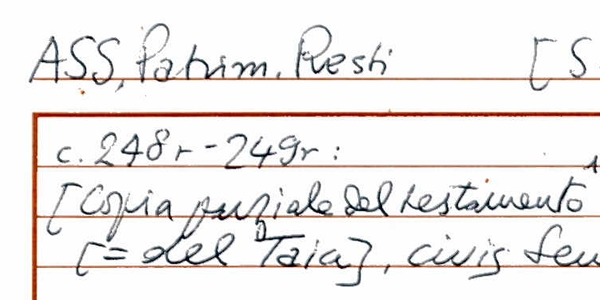 ASS, Patrim. Resti [S
c. 248r-249r:
[Copia parziale del testamento
[= del Taia], civis Sen